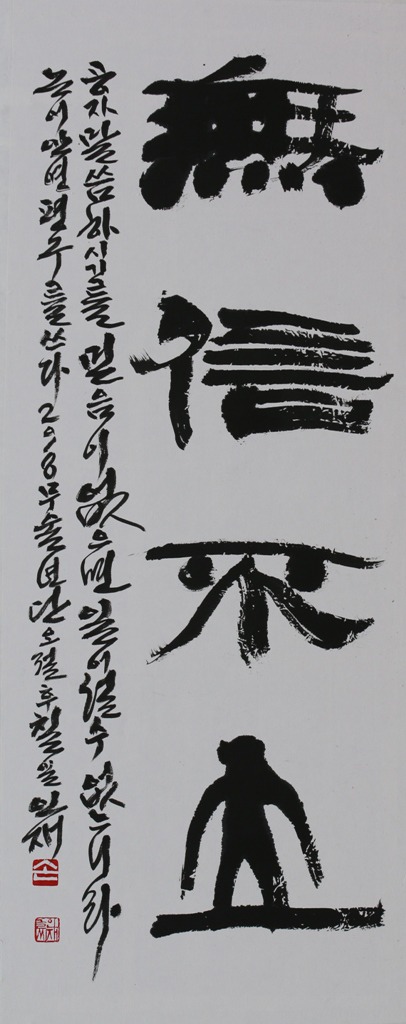 無信不立
공자 말씀하시기를 믿음이 없으면 일어설 수 없느니라
논어 안연편 구를 쓰다 2018 무술년 단오절 후 칠일 인재
손